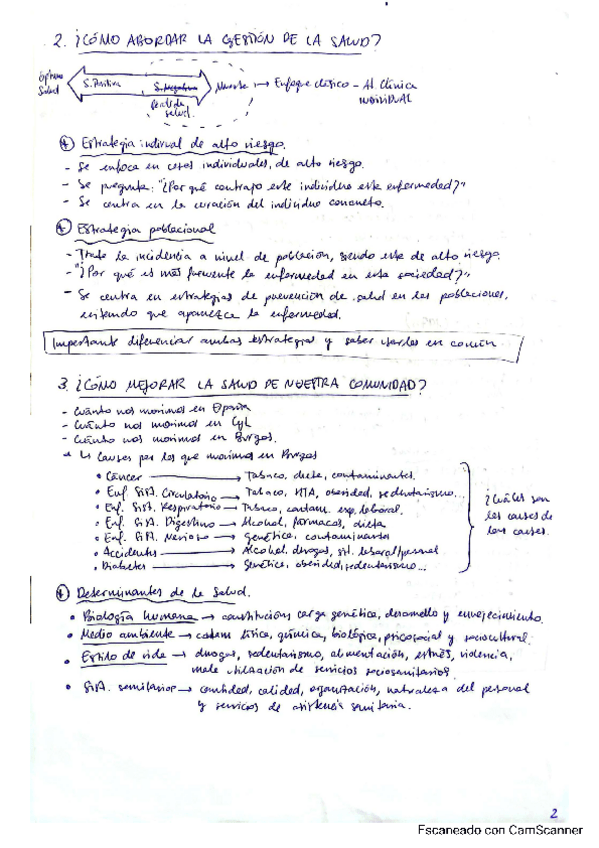 2. ¿CÓMO ABORDAR LA GESTIÓN DE LA SALUD?
Óptima Salud
S. Positiva
S. Negativa
Muerte → Enfoque clásico - At. Clínica
INDIVIDUAL
Pérdida salud.
Estrategia indivual de alto riesgo.
- Se enfoca en casos individuales, de alto riesgo.
- Se pregunta: "¿Por qué contrajo este individuo esta enfermedad?"
- Se centra en la curación del individuo concreto.
Estrategia poblacional
- Trata la incidencia a nivel de población, siendo esta de alto riesgo.
- "¿Por qué es más frecuente la enfermedad en esta sociedad?"
- Se centra en estrategias de prevención de salud en las poblaciones,
evitando que aparezca la enfermedad.
Importante diferenciar ambas estrategias y saber usarlas en común
3. ¿CÓMO MEJORAR LA SALUD DE NUESTRA COMUNIDAD?
- Cuánto nos morimos en España
- Cuánto nos morimos en CyL
- Cuánto nos morimos en Burgos.
Causas por las que morimos en Burgos
• Cáncer → Tabaco, dieta, contaminantes.
• Enf. Sist. Circulatorio → Tabaco, HTA, obesidad, sedentarismo...
• Enf. Sist. Respiratorio → Tabaco, contam. exp. laboral.
• Enf. Sist. Digestivo → Alcohol, fármacos, dieta
• Enf. Sist. Nervioso → Genética, contaminantes
• Accidentes → Alcohol, drogas, sit. laboral/personal
• Diabetes → Genética, obesidad, sedentarismo...
¿Cuáles son
las causas de
las causas.
Determinantes de la Salud.
• Biología humana → constitución, carga genética, desarrollo y envejecimiento.
• Medio ambiente → contam. física, química, biológica, psicosocial y sociocultural.
• Estilo de vida → drogas, sedentarismo, alimentación, estrés, violencia,
mala utilización de servicios sociosanitarios.
• Sist. sanitarios → cantidad, calidad, organización, naturaleza del personal
y servicios de asistencia sanitaria.
2
Escaneado con CamScanner